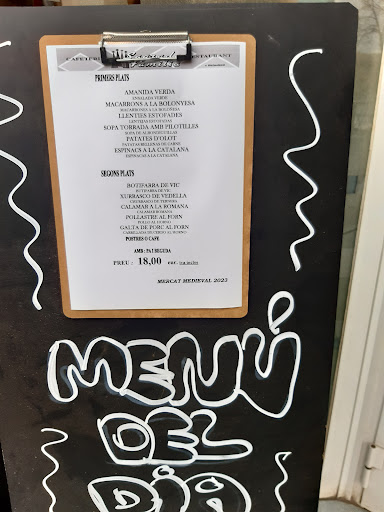 RESTAURANT
PRIMERS PLATS
AMANIDA VERDA
ENSALADA VERDE
MACARRONS A LA BOLONYESA
MACARRONES A LA BOLONESA
LLENTIES ESTOFADES
LENTEJAS ESTOFADAS
SOPA TORRADA AMB PILOTILLES
SOPA DE ALBONDIGUILLAS
PATATES D'OLOT
PATATAS RELLENAS DE CARNE
ESPINACS A LA CATALANA
ESPINACAS A LA CATALANA
SEGONS PLATS
BOTIFARRA DE VIC
BUTIFARRA DE VIC
XURRASCO DE VEDELLA
CHURRASCO DE TERNERA
CALAMAR A LA ROMANA
CALAMAR ROMANA
POLLASTRE AL FORN
POLLO AL HORNO
GALTA DE PORC AL FORN
CARRILLADA DE CERDO AL HORNO
POSTRES O CAFE
AMB: PA I BEGUDA
PREU : 18,00
MERCAT MEDIEVAL 2023
MENÚ
DEL
DÍA